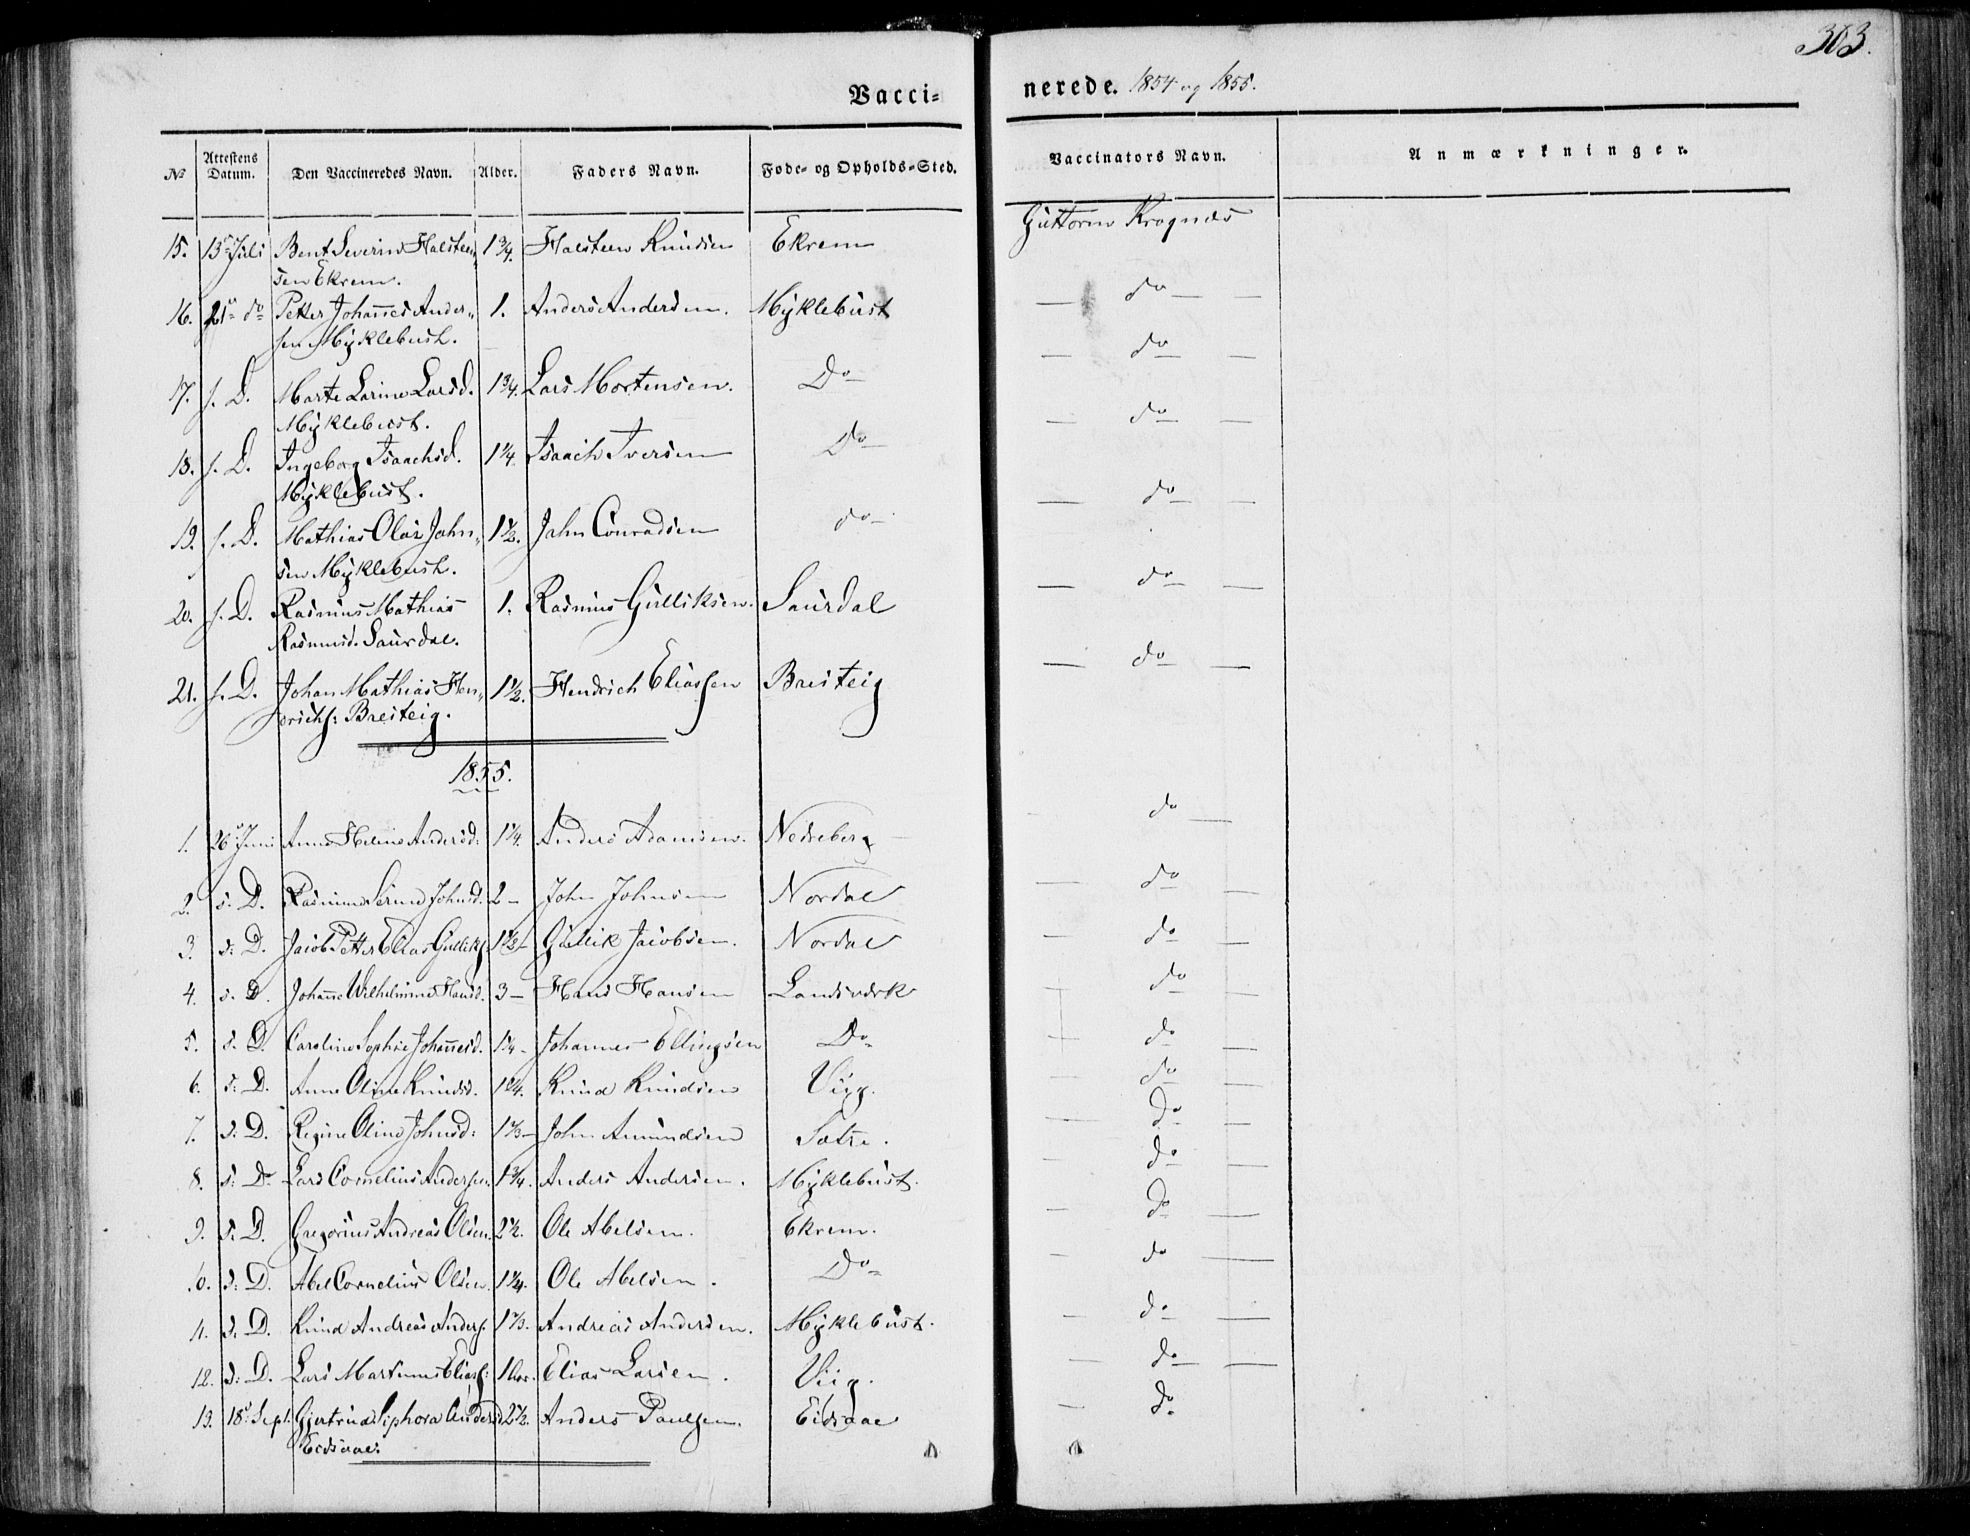 303.
Vacci-nerede. 1854 og 1855.
№ Attestens Datum. Den Vaccineredes Navn. Alder. Faders Navn. Føde- og Opholds-Sted. Vaccinators Navn. Anmærkninger.
15. 13de Juli Bent Severin Halsteen- 1¾. Halsteen Knudsen Ekrem Guttorm Krognæs
sen Ekrem.
16. 21de do Petter Johannes Ander- 1. Anders Andersen. Myklebust — do —
sen Myklebust.
17. s. D. Marte Larine Larsd. 1¾. Lars Mortensen. Do — do —
Myklebust.
18. s. D. Ingeborg Isaachsd. 1¼. Isaach Iversen Do — do —
Myklebust.
19. s. D. Mathias Olai John- 1½. John Conradsen do — do —
sen Myklebust.
20. s. D. Rasmus Mathias 1. Rasmus Gulliksen. Saurdal — do —
Rasmusd. Saurdal.
21. s. D. Johan Mathias Hen- 1½. Hendrich Eliassen Breiteig — do —
drichs: Breiteig.
1855.
1. 26de Juni Anne Heline Andersd: 1¼. Anders Adamsen. Nedreberg do —
2. s. D. Rasmine Serine Johnsd. 2 — John Johnsen Nordal — do —
3. s: D. Jacob Petter Elias Gulliks 1½ — Gullik Jacobsen. Nordal — do —
4. s. D. Johanne Wilhelmine Hansd. 3 — Hans Hansen Landsværk — do —
5. s. D. Caroline Sophie Johannesd. 1¼ — Johannes Ellingsen Do — do —
6. s: D. Anne Oline Knudsd. 1¾. Knud Knudsen Viig. — do —
7. s: D. Regine Oline Johnsd: 1⅓ — John Amundsen Sætre. — Do —
8. s: D. Lars Cornelius Andersen. 1¾. Anders Andersen. Myklebust. do —
9. s: D. Gregorius Andreas Olsen. 2½. Ole Abelsen. Ekrem. — Do —
10. s: D. Abel Cornelius Olsen. 1¼. Ole Abelsen. Do — do —
11. s. D. Knud Andreas Anders. 1⅓. Andreas Andersen. Myklebust. — do —
12. s: D. Lars Martinus Eliass: 1 Elias Larsen. Viig. — do —
13. 18de Sept. Gjertrud Siphora Andersd 2½. Anders Paulsen. Eidsaae do
Eidsaae: